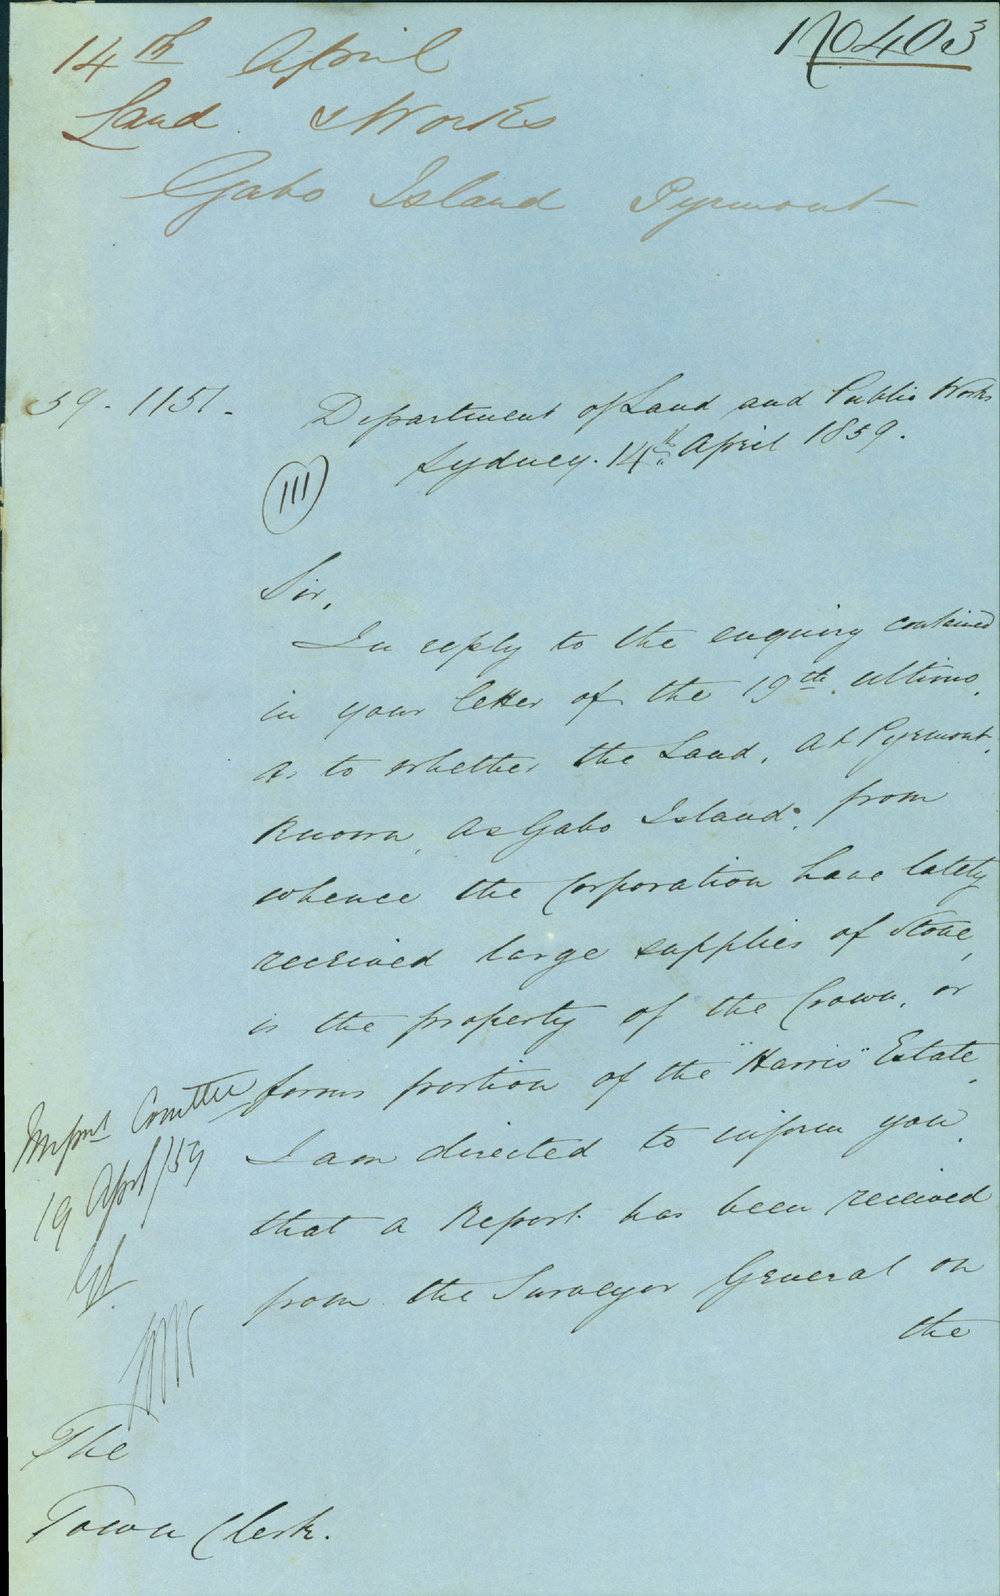 No 403
14th April
Land & Works
Gabo Island Pyrmont
59-1151-
Department of Land and Public Works
Sydney. 14th April 1859.
111
Sir,
In reply to the enquiry contained
in your letter of the 19th ultimo,
as to whether the Land, at Pyrmont,
Known, as Gabo Island, from
whence the Corporation have lately
received large supplies of Stone,
is the property of the Crown, or
forms portion of the "Harris" Estate,
I am directed to inform you,
that a Report has been received
from the Surveyor General on
the
Comttee
19 April/59
The
Town Clerk.